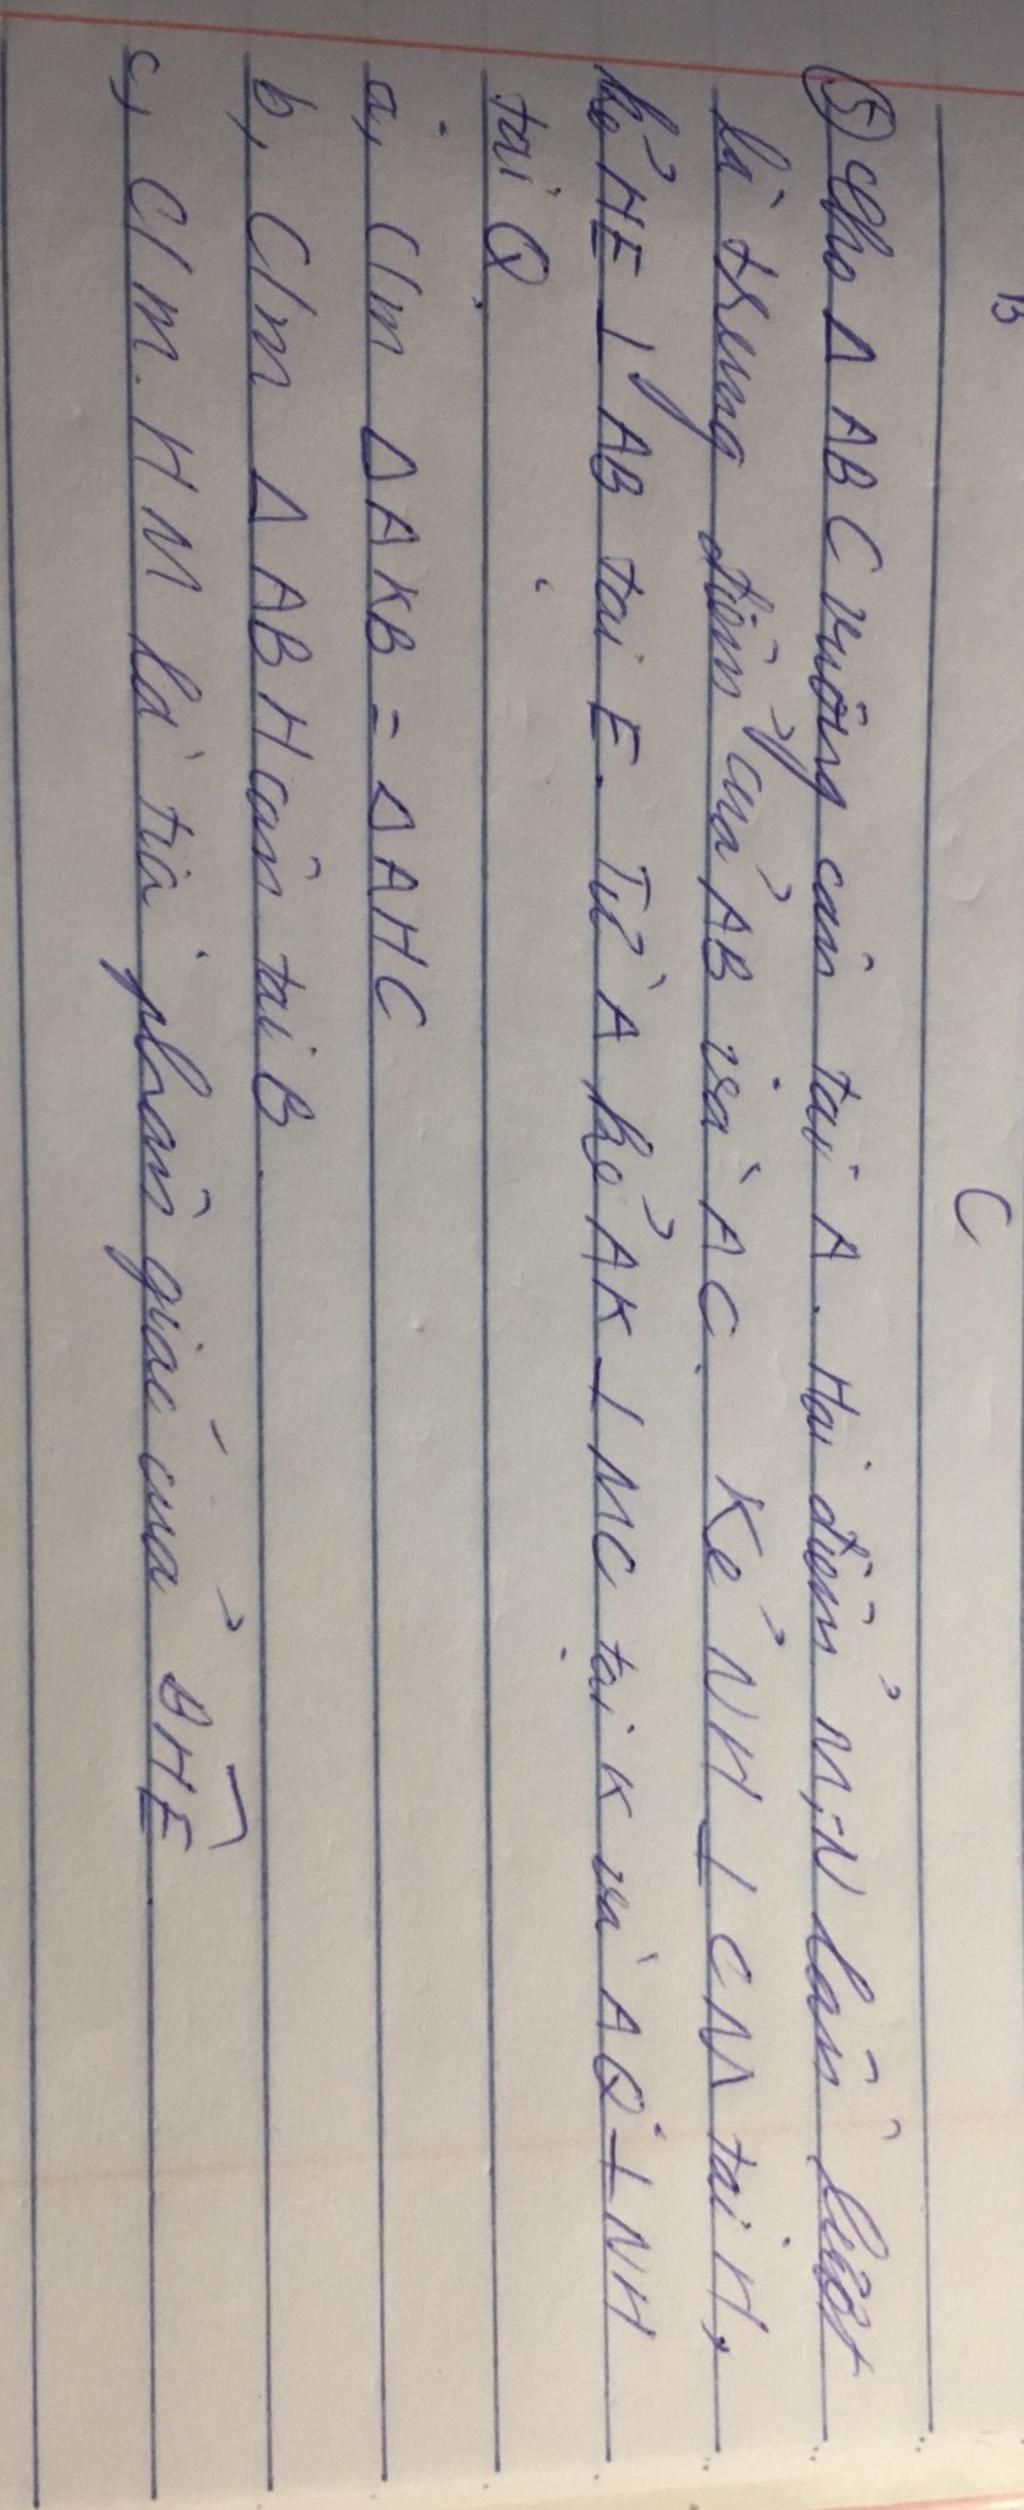 B
C
⑤ Cho Δ ABC vuông cân tại A. Hai điểm M, N lần lượt
là trung điểm của AB và AC. Kẻ NH ⊥ CM tại H,
kẻ HE ⊥ AB tại E. Từ A kẻ AK ⊥ MC tại K và AQ ⊥ NH
tại Q.
a, C/m ΔAKB = ΔAHC
b, C/m Δ ABH cân tại B.
c, C/m. HM là tia phân giác của BHE